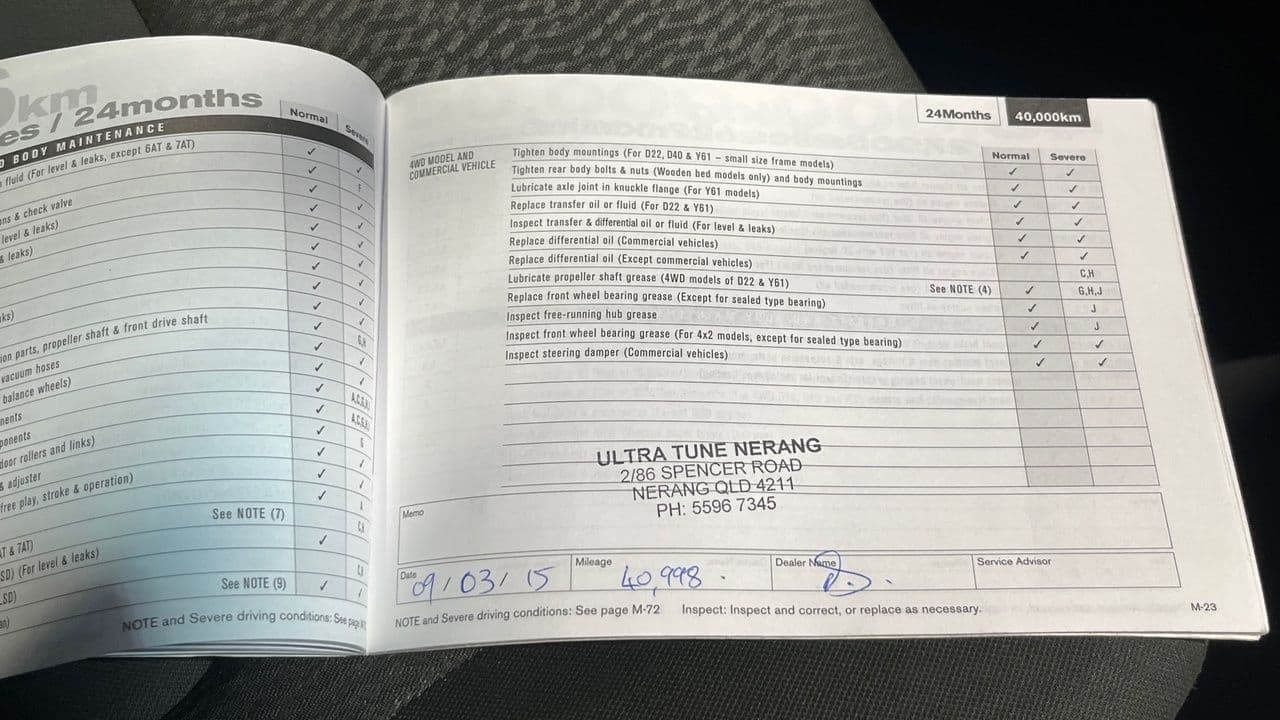 km
es / 24months
Normal
Severe
D BODY MAINTENANCE
fluid (For level & leaks, except 6AT & 7AT)
ns & check valve
level & leaks)
& leaks)
ks)
ion parts, propeller shaft & front drive shaft
vacuum hoses
balance wheels)
nents
ponents
door rollers and links)
& adjuster
free play, stroke & operation)
See NOTE (7)
AT & 7AT)
SD) (For level & leaks)
LSD)
See NOTE (9)
NOTE and Severe driving conditions: See page
24Months 40,000km
Normal Severe
4WD MODEL AND
COMMERCIAL VEHICLE
Tighten body mountings (For D22, D40 & Y61 – small size frame models) ✓ ✓
Tighten rear body bolts & nuts (Wooden bed models only) and body mountings ✓ ✓
Lubricate axle joint in knuckle flange (For Y61 models) ✓ ✓
Replace transfer oil or fluid (For D22 & Y61) ✓ ✓
Inspect transfer & differential oil or fluid (For level & leaks) ✓ ✓
Replace differential oil (Commercial vehicles) ✓ ✓
Replace differential oil (Except commercial vehicles) C,H
Lubricate propeller shaft grease (4WD models of D22 & Y61) See NOTE (4) ✓ G,H,J
Replace front wheel bearing grease (Except for sealed type bearing) ✓ J
Inspect free-running hub grease ✓ J
Inspect front wheel bearing grease (For 4x2 models, except for sealed type bearing) ✓ ✓
Inspect steering damper (Commercial vehicles) ✓ ✓
ULTRA TUNE NERANG
2/86 SPENCER ROAD
NERANG QLD 4211
PH: 5596 7345
Memo
Date 09/03/15 Mileage 40,998. Dealer Name Service Advisor
NOTE and Severe driving conditions: See page M-72 Inspect: Inspect and correct, or replace as necessary.
M-23